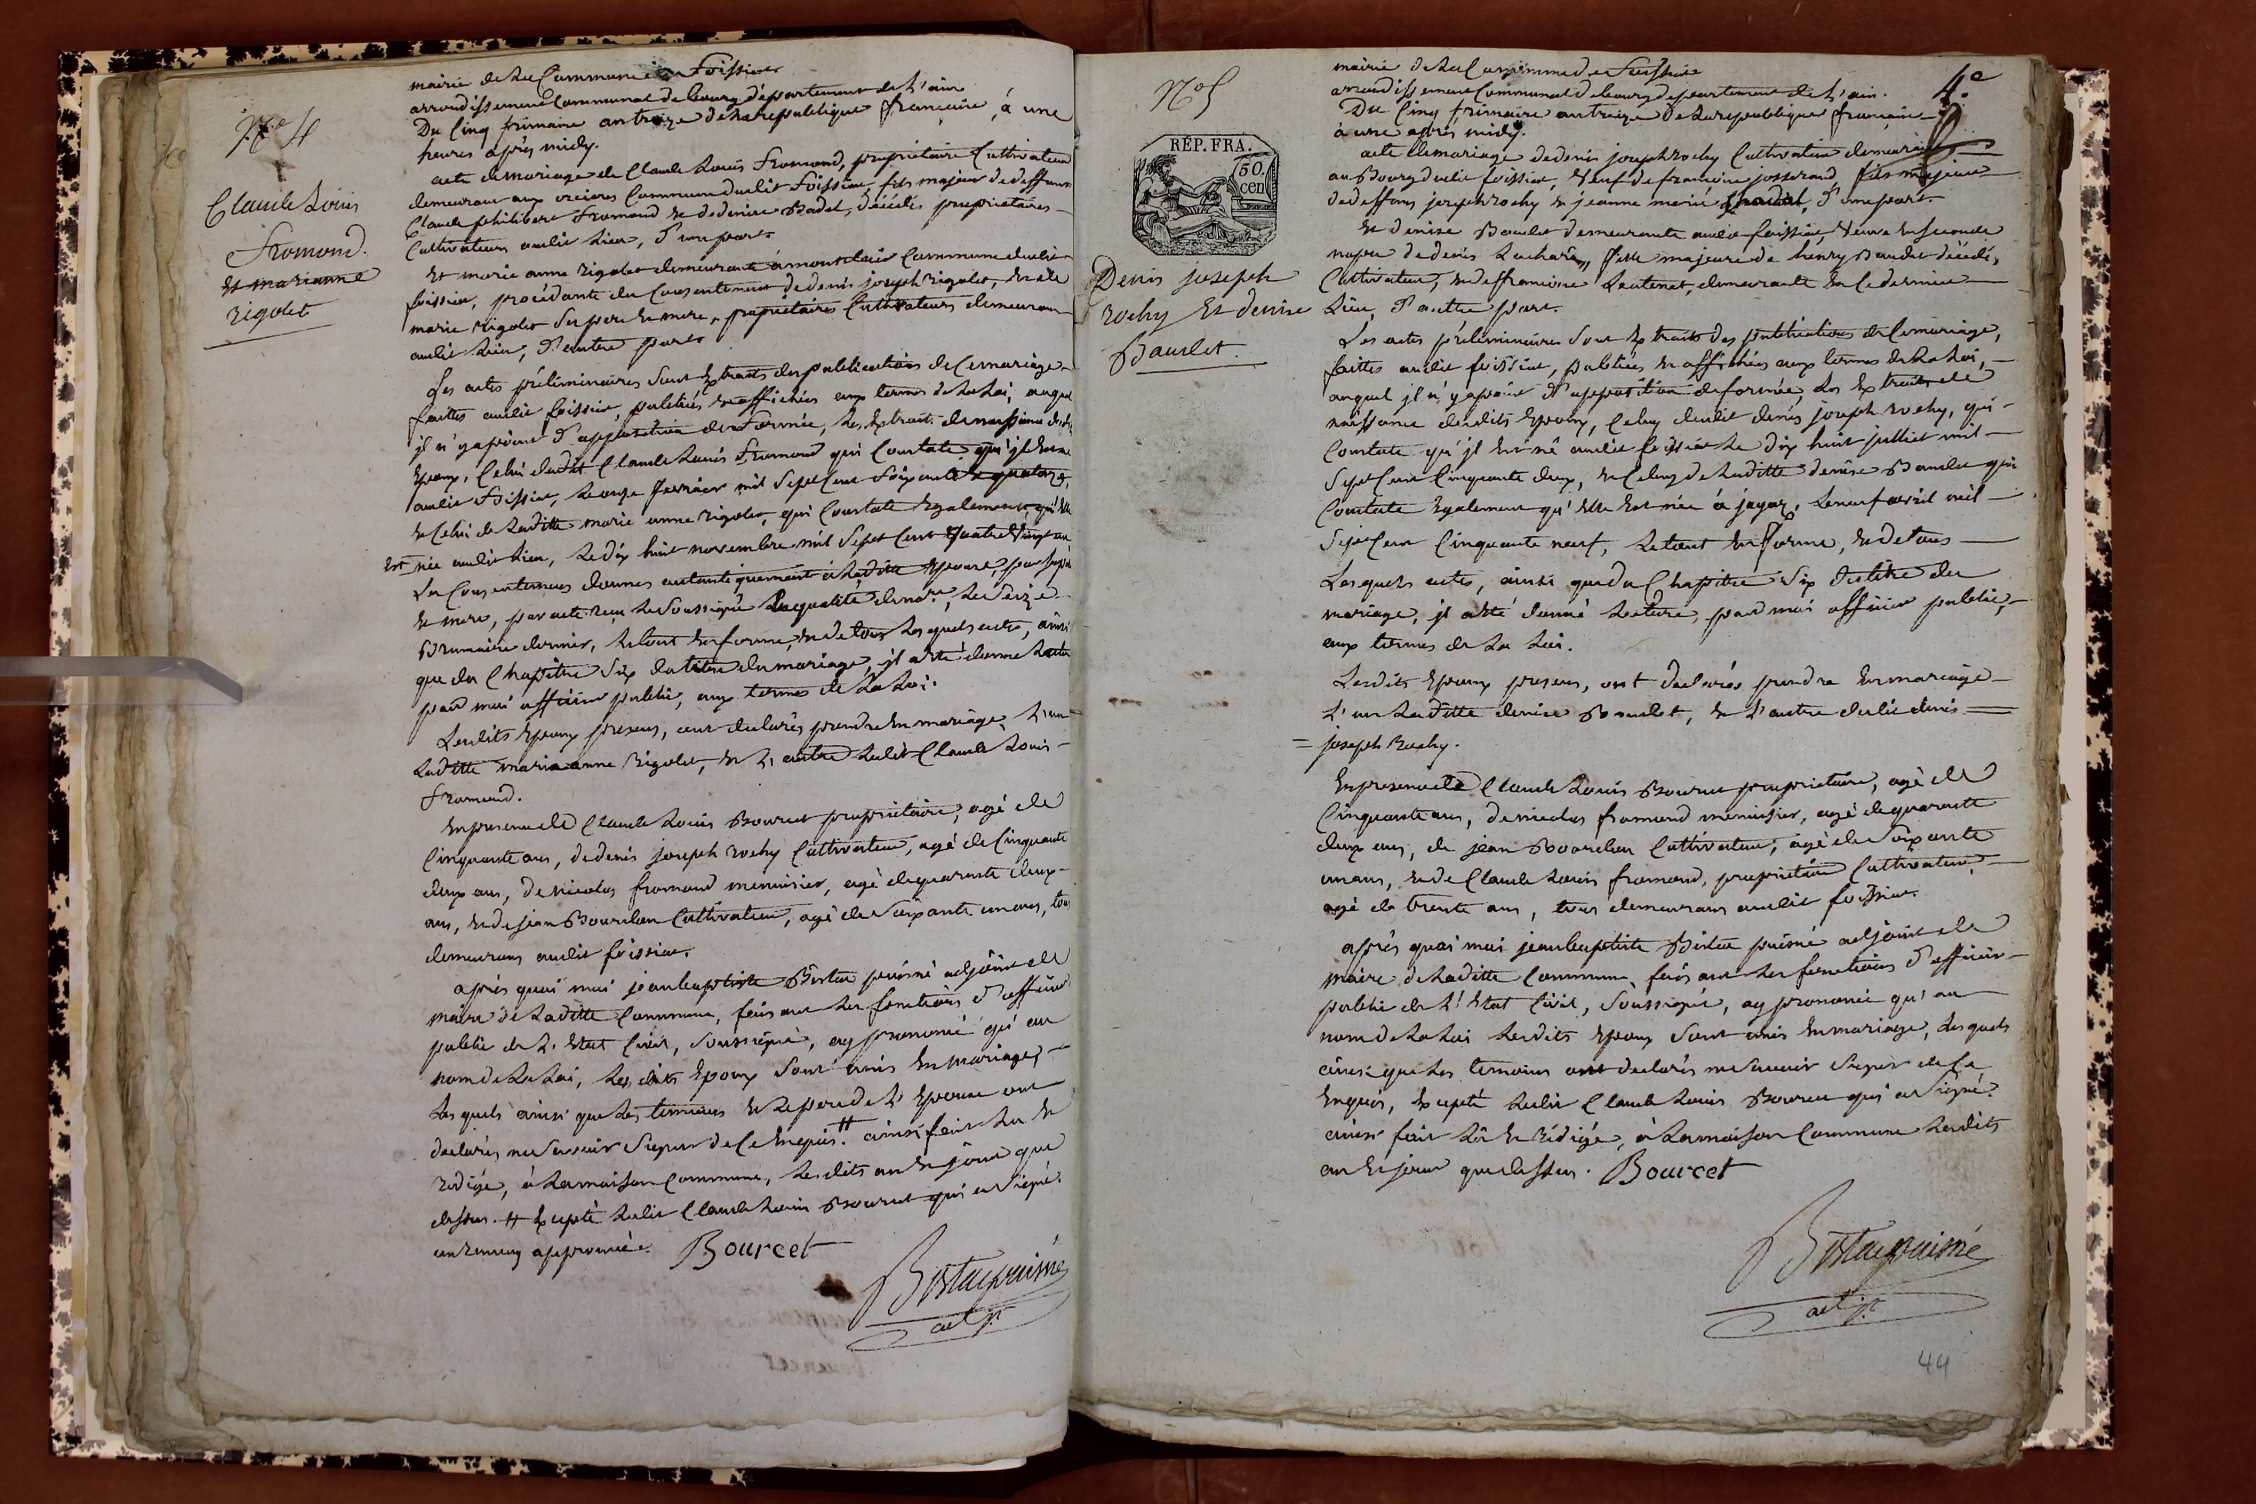 N.o 4
Claude Louis
Fromond.
et marianne
rigolet
mairie de la Commune de Foissiat
arrondissement Communal de bourg département de L'ain
Du Cinq frimaire an treize de la republique française, à une
heures après midy.
acte de mariage de Claude Louis Fromond, propriétaire Cultivateur
demeurant aux Commune dudit Foissiat, fils majeur de deffunts
Claude philibert Fromond et de denise Badet, décédés propriétaires
Cultivateurs audit Lieu, d'une part
Et marie anne rigolet demeurante à montclair Commune dudit
foissiat, procédante du Consentement de denis joseph rigolet, et de
marie rigolet Ses pere et mere, propriétaires Cultivateurs demeurans
audit Lieu, d'autre part
Les actes préliminaires Sont Extraits des publications de Ce mariage
faittes audit foissiat, publiées et affichées aux termes de la Loi, auquel
il n'y a point d'opposition de formée, les Extraits de naissance desdits
Epoux, Celui dudit Claude Louis Fromond qui Constate qu'il est né
audit Foissiat, le onze fevrier mil Sept Cent Soixante et quatorze,
et Celui de Laditte marie anne rigolet, qui Constate Egalement qu'elle
Est née audit Lieu, le dix huit novembre mil Sept Cent Quatre Vingt un
Le Consentement donné autentiquement à Laditte Epouse, par ses père
et mere, par acte reçu le Soussigné en qualité de no.re, le Seize
Brumaire dernier, le tout En forme, et de tous Les quels actes, ainsi
que du Chapitre Six du titre du mariage, il a été donné Lecture
par moi officier public, aux termes de la Loi.
Lesdits Epoux presens, ont declarés prendre En mariage, L'un
Laditte marie anne Rigolet, et L'autre Ledit Claude Louis
Fromond.
En presence de Claude Louis Bourcet propriétaire, agé de
Cinquante ans, de denis joseph rochy Cultivateur, agé de Cinquante
deux ans, de nicolas fromond menuisier, agé de quarante deux
ans, et de jean Bourdon Cultivateur, agé de Soixante un ans, tous
demeurans audit foissiat.
après quoi moi jean baptiste Bistac puisné adjoint de
maire de Laditte Commune, faisant les fonctions d'officier
public de L'Etat Civil, Soussigné, ay prononcé qu'au
nom de la Loi, Les dits Epoux Sont unis En mariage,
Les quels ainsi que les témoins et le pere de L'Epouse ont
declarés ne Savoir Signer de Ce Enquis. # ainsi fait Lu et
redigé, à la maison Commune, Les dits an et jour que
dessus. # Excepté Ledit Claude Louis Bourcet qui a Signé.
un renvoy approuvé. Bourcet
Bistac puisné
adj.t
N.o 5
RÉP. FRA.
50
cen
Denis joseph
rochy Et denise
Baudet.
4.e
mairie de la Commune de Foissiat
arrondissement Communal de bourg département de L'ain.
Du Cinq frimaire an treize de la republique française
à une après midy.
acte de mariage de denis joseph rochy Cultivateur demeurant
au Bourg dudit foissiat, Veuf de françoise josserand, fils majeur
de deffunts joseph rochy et jeanne marie, d'une part.
Et denise Baudet demeurante audit foissiat, Veuve En seconde
nopce de denis, fille majeure de henry Baudet décédé,
Cultivateur, et de françoise, demeurante En Ce dernier
Lieu, d'autre part.
Les actes préliminaires Sont Extraits des publications de Ce mariage,
faittes audit foissiat, publiées et affichées aux termes de la Loi,
auquel il n'y a point d'opposition de formée, Les Extraits de
naissance desdits Epoux, Celuy dudit denis joseph rochy, qui
Constate qu'il Est né audit foissiat Le dix huit juillet mil
Sept Cent Cinquante deux, et Celuy de Laditte denise Baudet qui
Constate Egalement qu'elle Est née à jayaz, Le neuf avril mil
Sept Cent Cinquante neuf, Le tout En forme, et de tous
Les quels actes, ainsi que du Chapitre Six du titre du
mariage, il a été donné Lecture, par moi officier public,
aux termes de la Loi.
Lesdits Epoux presens, ont declarés prendre En mariage
L'un Laditte denise Baudet, et L'autre Ledit denis
joseph Rochy.
En presence de Claude Louis Bourcet propriétaire, agé de
Cinquante ans, de nicolas fromond menuisier, agé de quarante
deux ans, de jean Bourdon Cultivateur, agé de Soixante
un ans, et de Claude Louis fromond, propriétaire Cultivateur,
agé de trente ans, tous demeurans audit foissiat.
après quoi moi jean baptiste Bistac puisné adjoint de
maire de Laditte Commune, faisant les fonctions d'officier
public de L'Etat Civil, Soussigné, ay prononcé qu'au
nom de la Loi Lesdits Epoux Sont unis En mariage, Les quels
ainsi que les temoins ont declarés ne Savoir Signer de Ce
Enquis, Excepté Ledit Claude Louis Bourcet qui a Signé
ainsi fait Lû et Rédigé, à La maison Commune Lesdits
an Et jour que dessus. Bourcet
Bistac puisné
adj.t
44